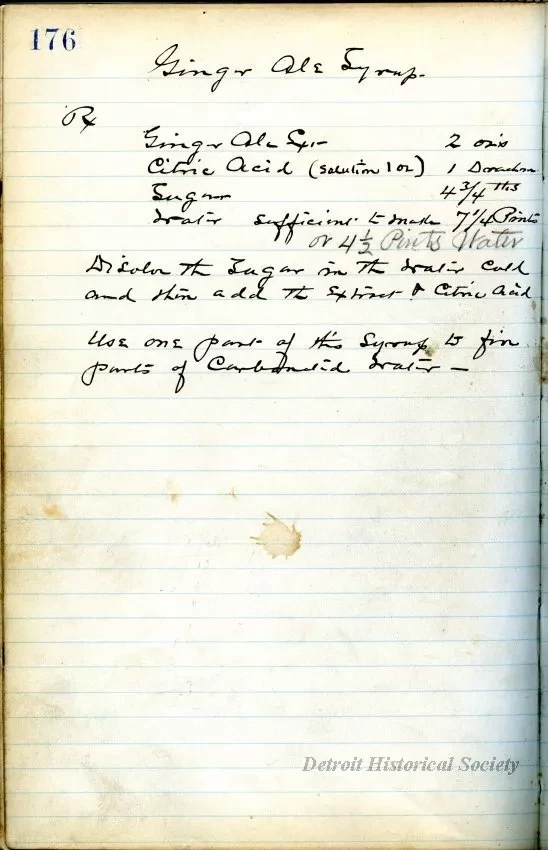 176
Ginger Ale Syrup.
Rx
Ginger Ale Ext 2 ozs
Citric Acid (solution 1 oz) 1 Drachm
Sugar 4 3/4 lbs
Water sufficient to make 7 1/4 Pints
or 4 1/2 Pints Water
Disolve the Sugar in the Water cold
and then add the Extract & Citric Acid
Use one part of this Syrup to five
parts of Carbonated Water —
Detroit Historical Society